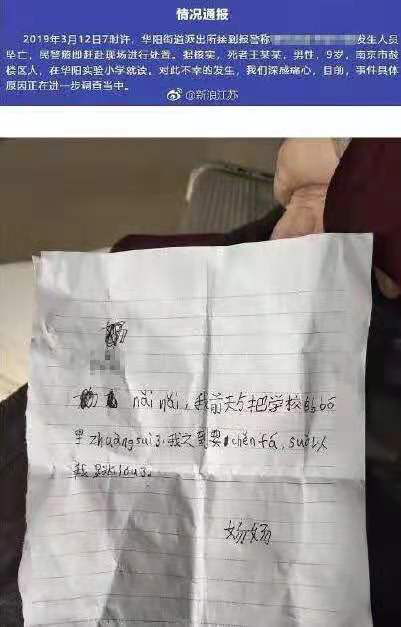 情况通报
2019年3月12日7时许，华阳街道派出所接到报警称发生人员
坠亡，民警随即赶赴现场进行处置。据核实，死者王某某，男性，9岁，南京市鼓
楼区人，在华阳实验小学就读。对此不幸的发生，我们深感痛心，目前，事件具体
原因正在进一步调查当中。
@新浪江苏
奶
nǎi nǎi，我前天与把学校的bō
里zhuàng suì了，我之到要chěn fá，suǒ以
我跳lóu了。
奶奶